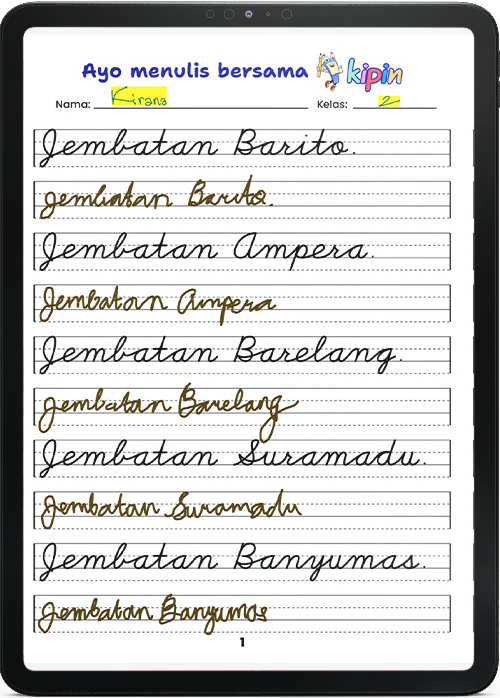 Ayo menulis bersama kipin
Nama: Kirana Kelas: 2
Jembatan Barito.
Jembatan Barito.
Jembatan Ampera.
Jembatan Ampera
Jembatan Barelang.
Jembatan Barelang
Jembatan Suramadu.
Jembatan Suramadu
Jembatan Banyumas.
Jembatan Banyumas
1